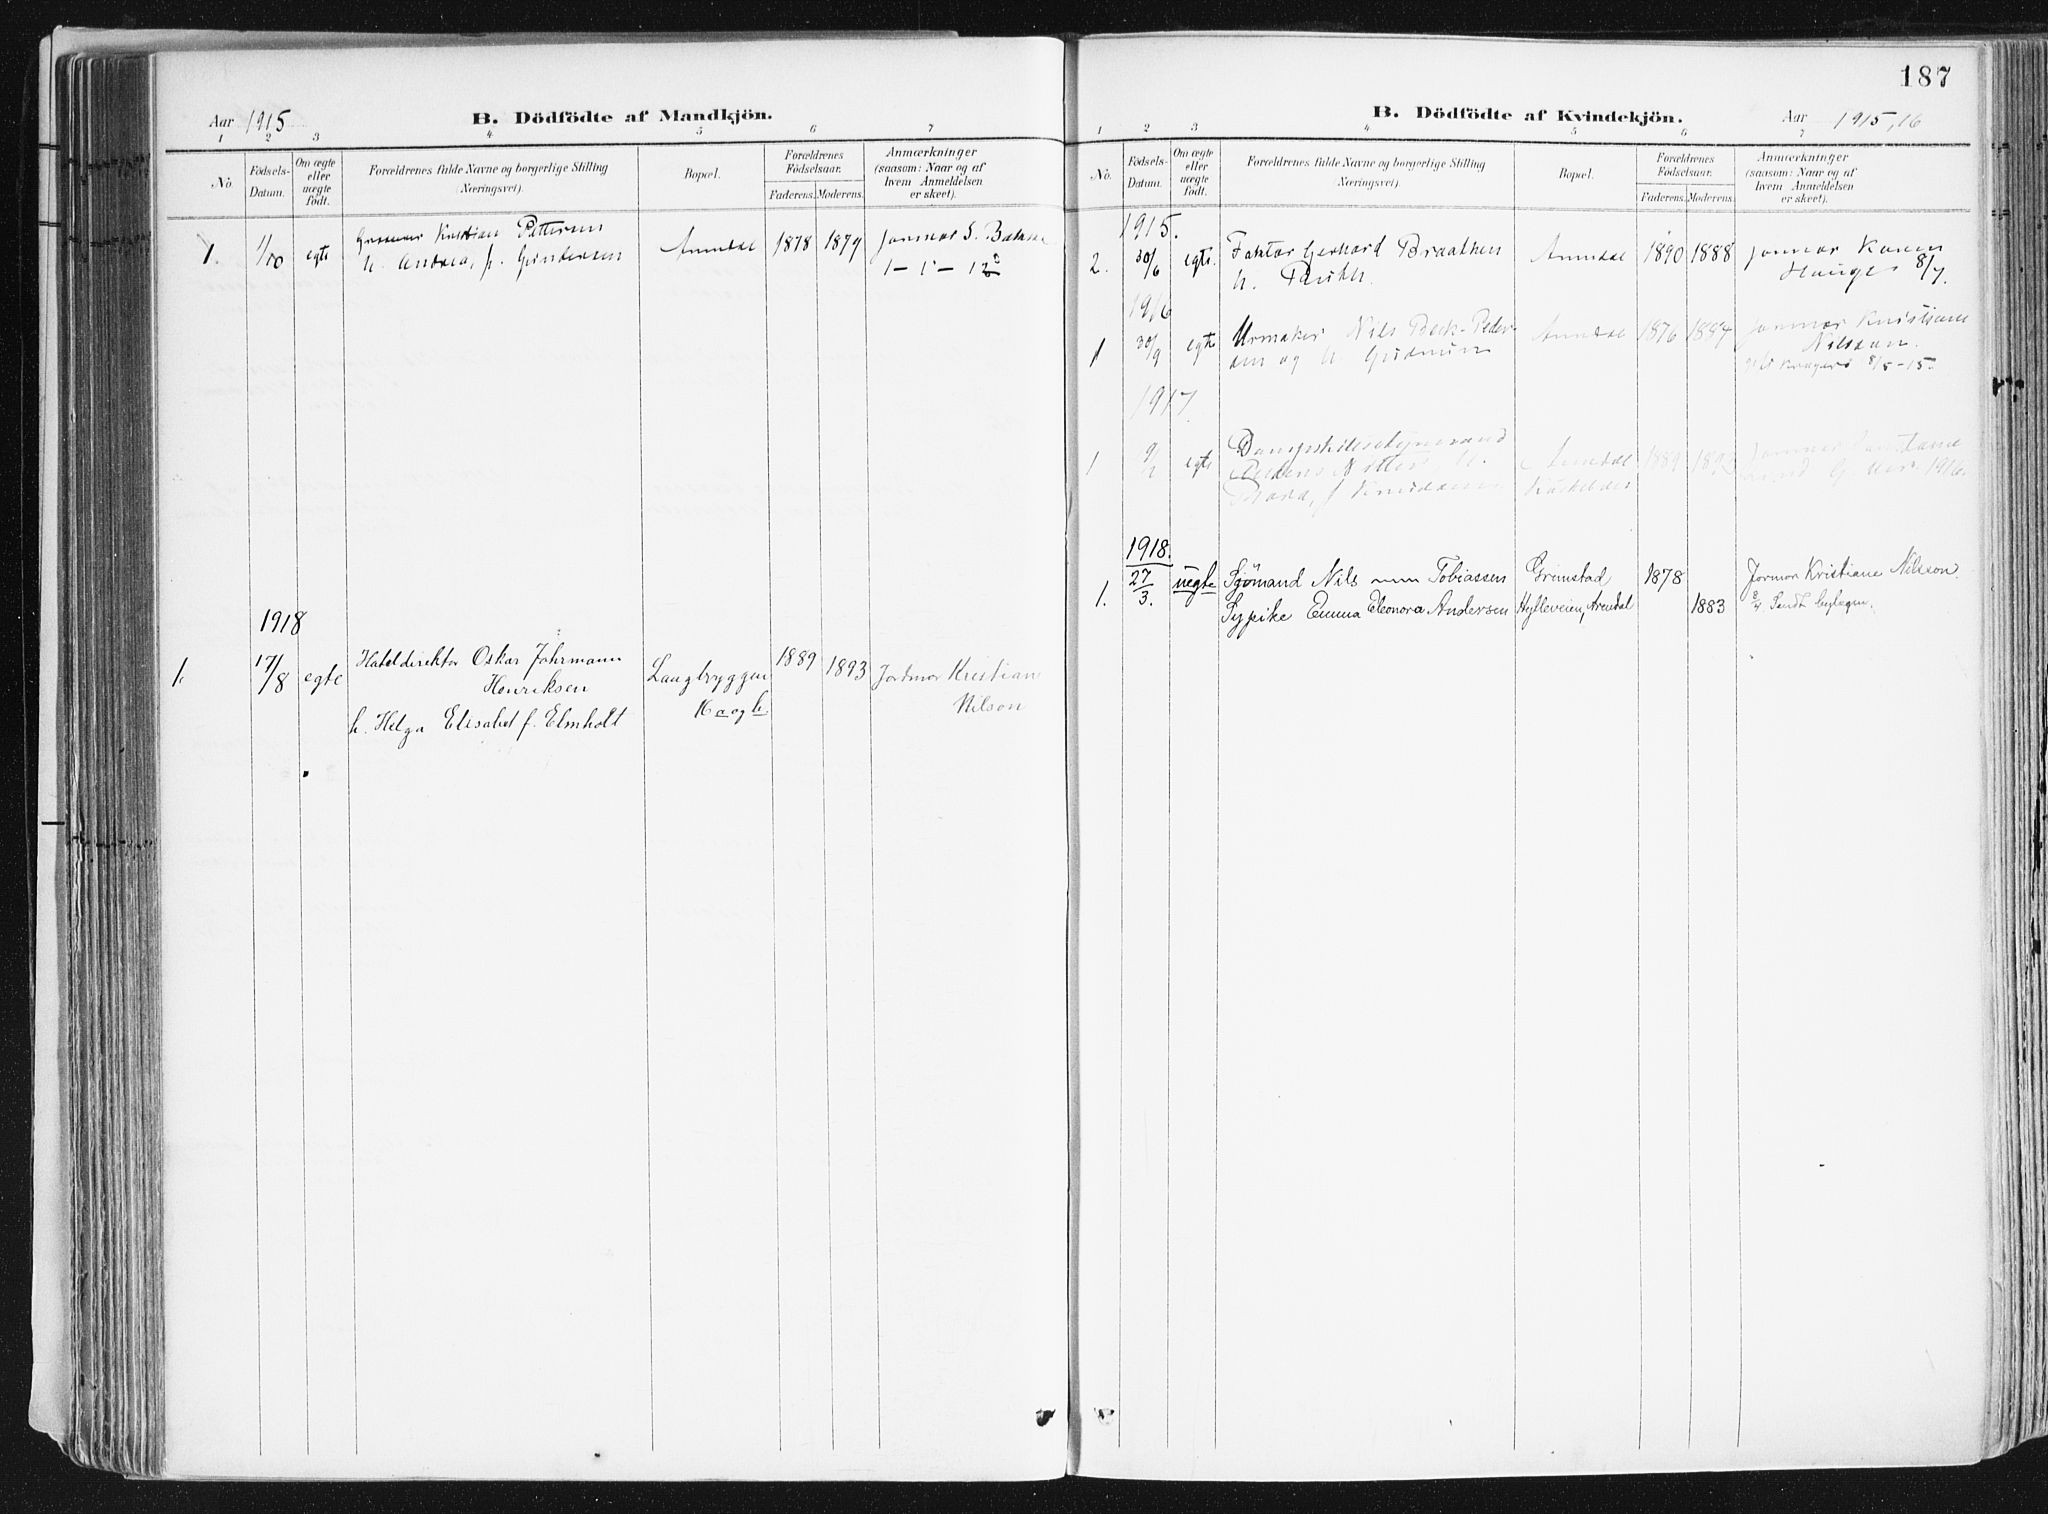 Aar 1915
B. Dödfödte af Mandkjön.
1 2 3 4 5 6 7
No.
Födsels-
Datum.
Om ægte
eller
uægte
födt.
Forældrenes fulde Navne og borgerlige Stilling
(Næringsvei).
Bopæl.
Forældrenes
Födselsaar.
Faderens. Moderens.
Anmærkninger
(saasom: Naar og af
hvem Anmeldelsen
er skeet).
1. 1/10 egte Kristian Pettersen
h. Andrea, f. Gundersen
Arendal 1878 1879 Jormor S.
1918
1. 17/8 egte Hoteldirektør Oskar Johrmann
Henriksen
h. Helga Elisabet f. Elmholt
Langbryggen
16 a og b.
1889 1893 Jordmor Kristiane
Nilson
187
B. Dödfödte af Kvindekjön.
Aar 1915, 16
1 2 3 4 5 6 7
No.
Födsels-
Datum.
Om ægte
eller
uægte
födt.
Forældrenes fulde Navne og borgerlige Stilling
(Næringsvei).
Bopæl.
Forældrenes
Födselsaar.
Faderens. Moderens.
Anmærkninger
(saasom: Naar og af
hvem Anmeldelsen
er skeet).
1915.
2. 30/6 egte. Faktor Gerhard Braathen
h.
Arendal 1890 1888 Jormor Karen
Hauge 8/7.
1916
1 30/9 egte Urmaker Nils Beck-Peder-
sen og h. Gudrun
Arendal 1876 1884 Jormor Kristiane
Nilsson.
Kragerø 8/5-15
1917
1 9/2 egte
h.
Arendal 1889
1916.
1918.
1. 27/3. uegte Sjömand Nils Tobiassen
Grimstad 1878
Jormor Kristiane Nilsson.
Sypike Emma Eleonora Andersen
Hylleveien, Arendal 1883